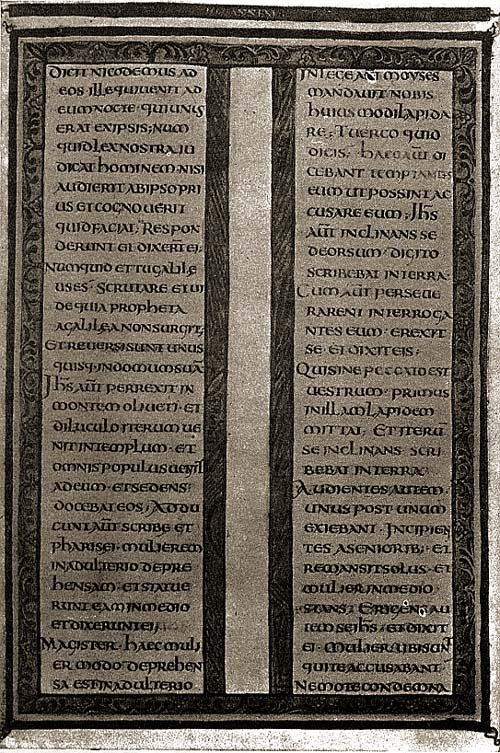 DICIT NICODEMUS AD
EOS ILLE QUI UENIT AD
EUM NOCTE · QUI UNUS
ERAT EX IPSIS; NUM
QUID LEX NOSTRA IU
DICAT HOMINEM NISI
AUDIERIT AB IPSO PRI
US ET COGNOUERIT
QUID FACIAT; RESPON
DERUNT ET DIXER̄T EI;
NUMQUID ET TU GALILE
US ES · SCRUTARE ET UI
DE QUIA PROPHETA
A GALILEA NON SURGIT;
ET REUERSI SUNT UNUS
QUISQ; IN DOMUM SUĀ
IH̄S AUT̄ PERREXIT IN
MONTEM OLIUETI · ET
DILUCULO ITERUM UE
NIT IN TEMPLUM · ET
OMNIS POPULUS UENIT
AD EUM · ET SEDENS
DOCEBAT EOS; ADDU
CUNT AUT̄ SCRIBE ET
PHARISEI · MULIEREM
IN ADULTERIO DEPRE
HENSAM · ET STATUE
RUNT EAM IN MEDIO
ET DIXERUNT EI;
MAGISTER · HAEC MULI
ER MODO DEPREHEN
SA EST IN ADULTERIO
IN LEGE AUT̄ MOYSES
MANDAUIT NOBIS
HUIUS MODI LAPIDA
RE; TU ERGO QUID
DICIS; HAEC AUT̄ DI
CEBANT TEMPTANTES
EUM UT POSSINT AC
CUSARE EUM; IH̄S
AUT̄ INCLINANS SE
DEORSUM · DIGITO
SCRIBEBAT IN TERRA ·
CUM AUT̄ PERSEUE
RARENT INTERROGA
NTES EUM · EREXIT
SE · ET DIXIT EIS;
QUI SINE PECCATO EST
UESTRUM · PRIMUS
IN ILLAM LAPIDEM
MITTAT · ET ITERŪ
SE INCLINANS · SCRI
BEBAT IN TERRA ·
AUDIENTES AUTEM ·
UNUS POST UNUM
EXIEBANT · INCIPIEN
TES A SENIORIB; · ET
REMANSIT SOLUS · ET
MULIER IN MEDIO
STANS; ERIGENS AU
TEM SE IH̄S · ET DIXIT
EI · MULIER UBI SUNT
QUI TE ACCUSABANT
NEMO TE CONDEMNA